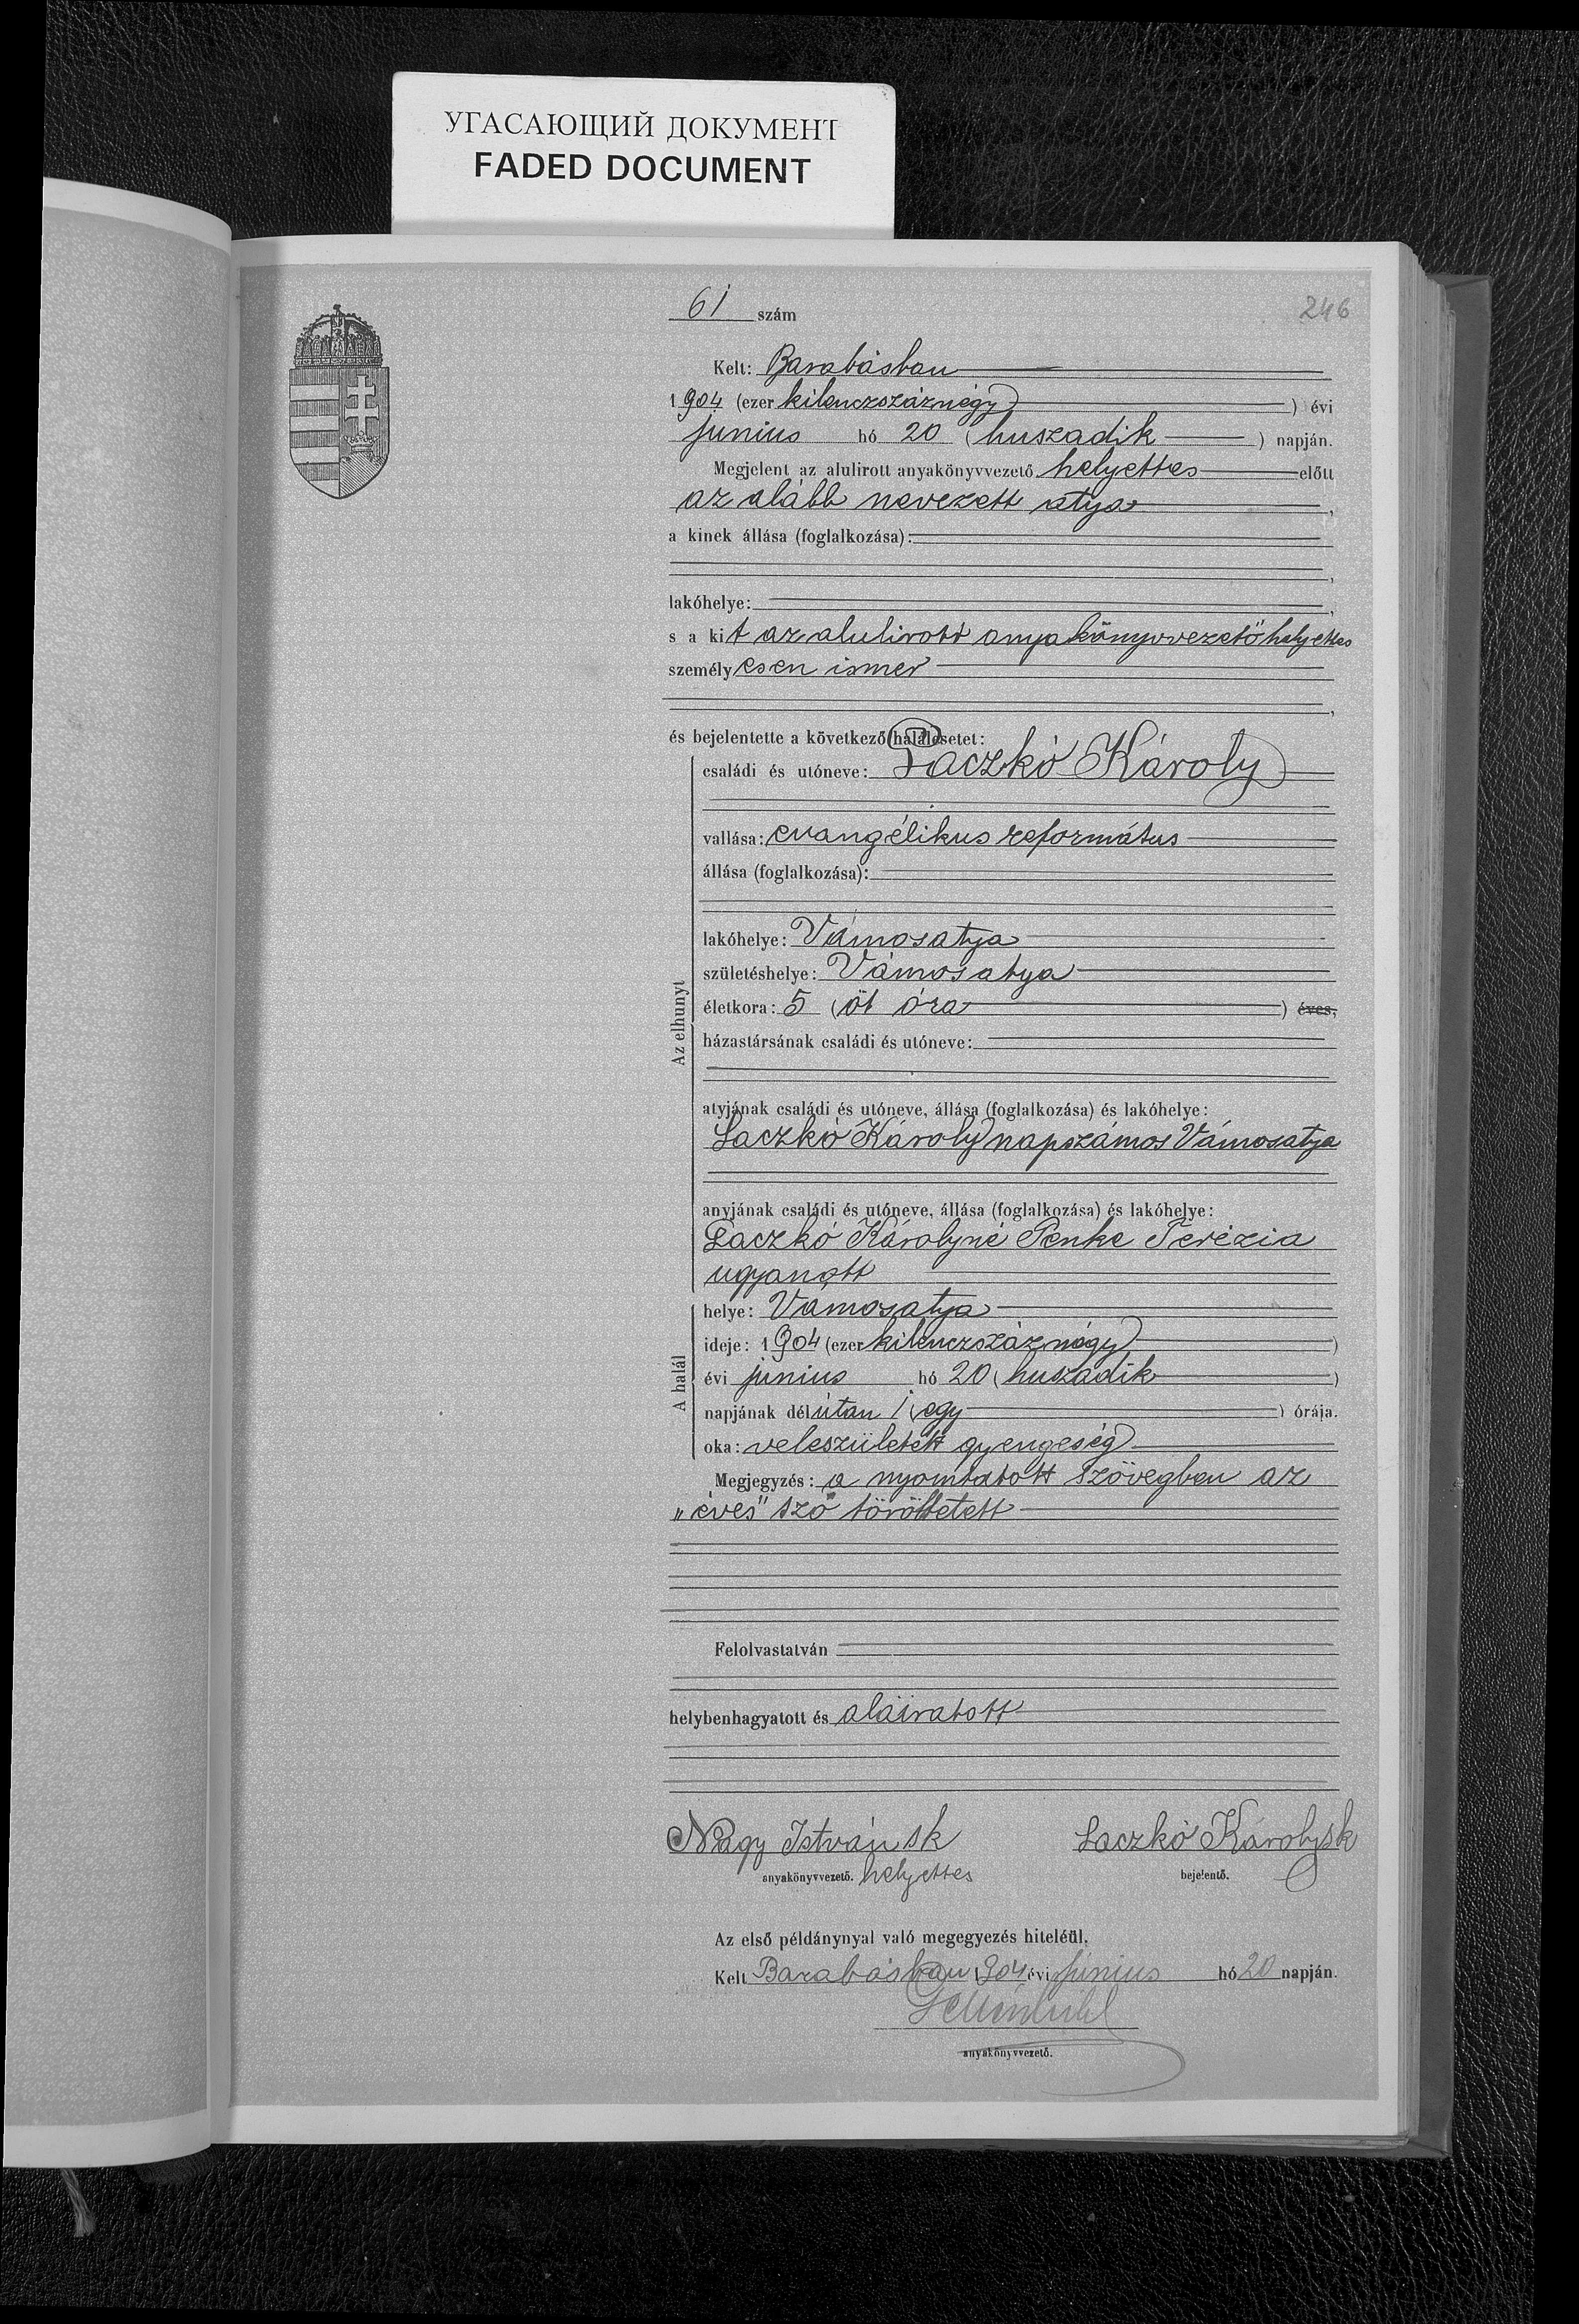 УГАСАЮЩИЙ ДОКУМЕНТ
FADED DOCUMENT
61 szám
246
Kelt: Barabásban
1904 (ezer kilenczszáznégy) évi
junius hó 20 (huszadik) napján.
Megjelent az alulirott anyakönyvvezető helyettes előtt
az alább nevezett atya,
a kinek állása (foglalkozása):
,
lakóhelye: ,
s a kit az alulirott anyakönyvvezető helyettes
személyesen ismer
,
és bejelentette a következő halálesetet:
családi és utóneve: Laczkó Károly
vallása: evangélikus református
állása (foglalkozása):
lakóhelye: Vámosatya
születéshelye: Vámosatya
életkora: 5 (öt óra) éves,
házastársának családi és utóneve:
Az elhunyt
atyjának családi és utóneve, állása (foglalkozása) és lakóhelye:
Laczkó Károly napszámos Vámosatya
anyjának családi és utóneve, állása (foglalkozása) és lakóhelye:
Laczkó Károlyné Penke Terézia
ugyanott
helye: Vámosatya
ideje: 1904 (ezer kilenczszáznégy)
évi junius hó 20 (huszadik)
napjának délután 1 (egy) órája.
A halál
oka: veleszületett gyengeség
Megjegyzés: a nyomtatott szövegben az
„éves" szó töröltetett
Felolvastatván
helybenhagyatott és aláiratott
Nagy István sk Laczkó Károly sk
anyakönyvvezető. helyettes bejelentő.
Az első példánynyal való megegyezés hiteléül.
Kelt Barabásban 1904 évi junius hó 20 napján.
anyakönyvvezető.